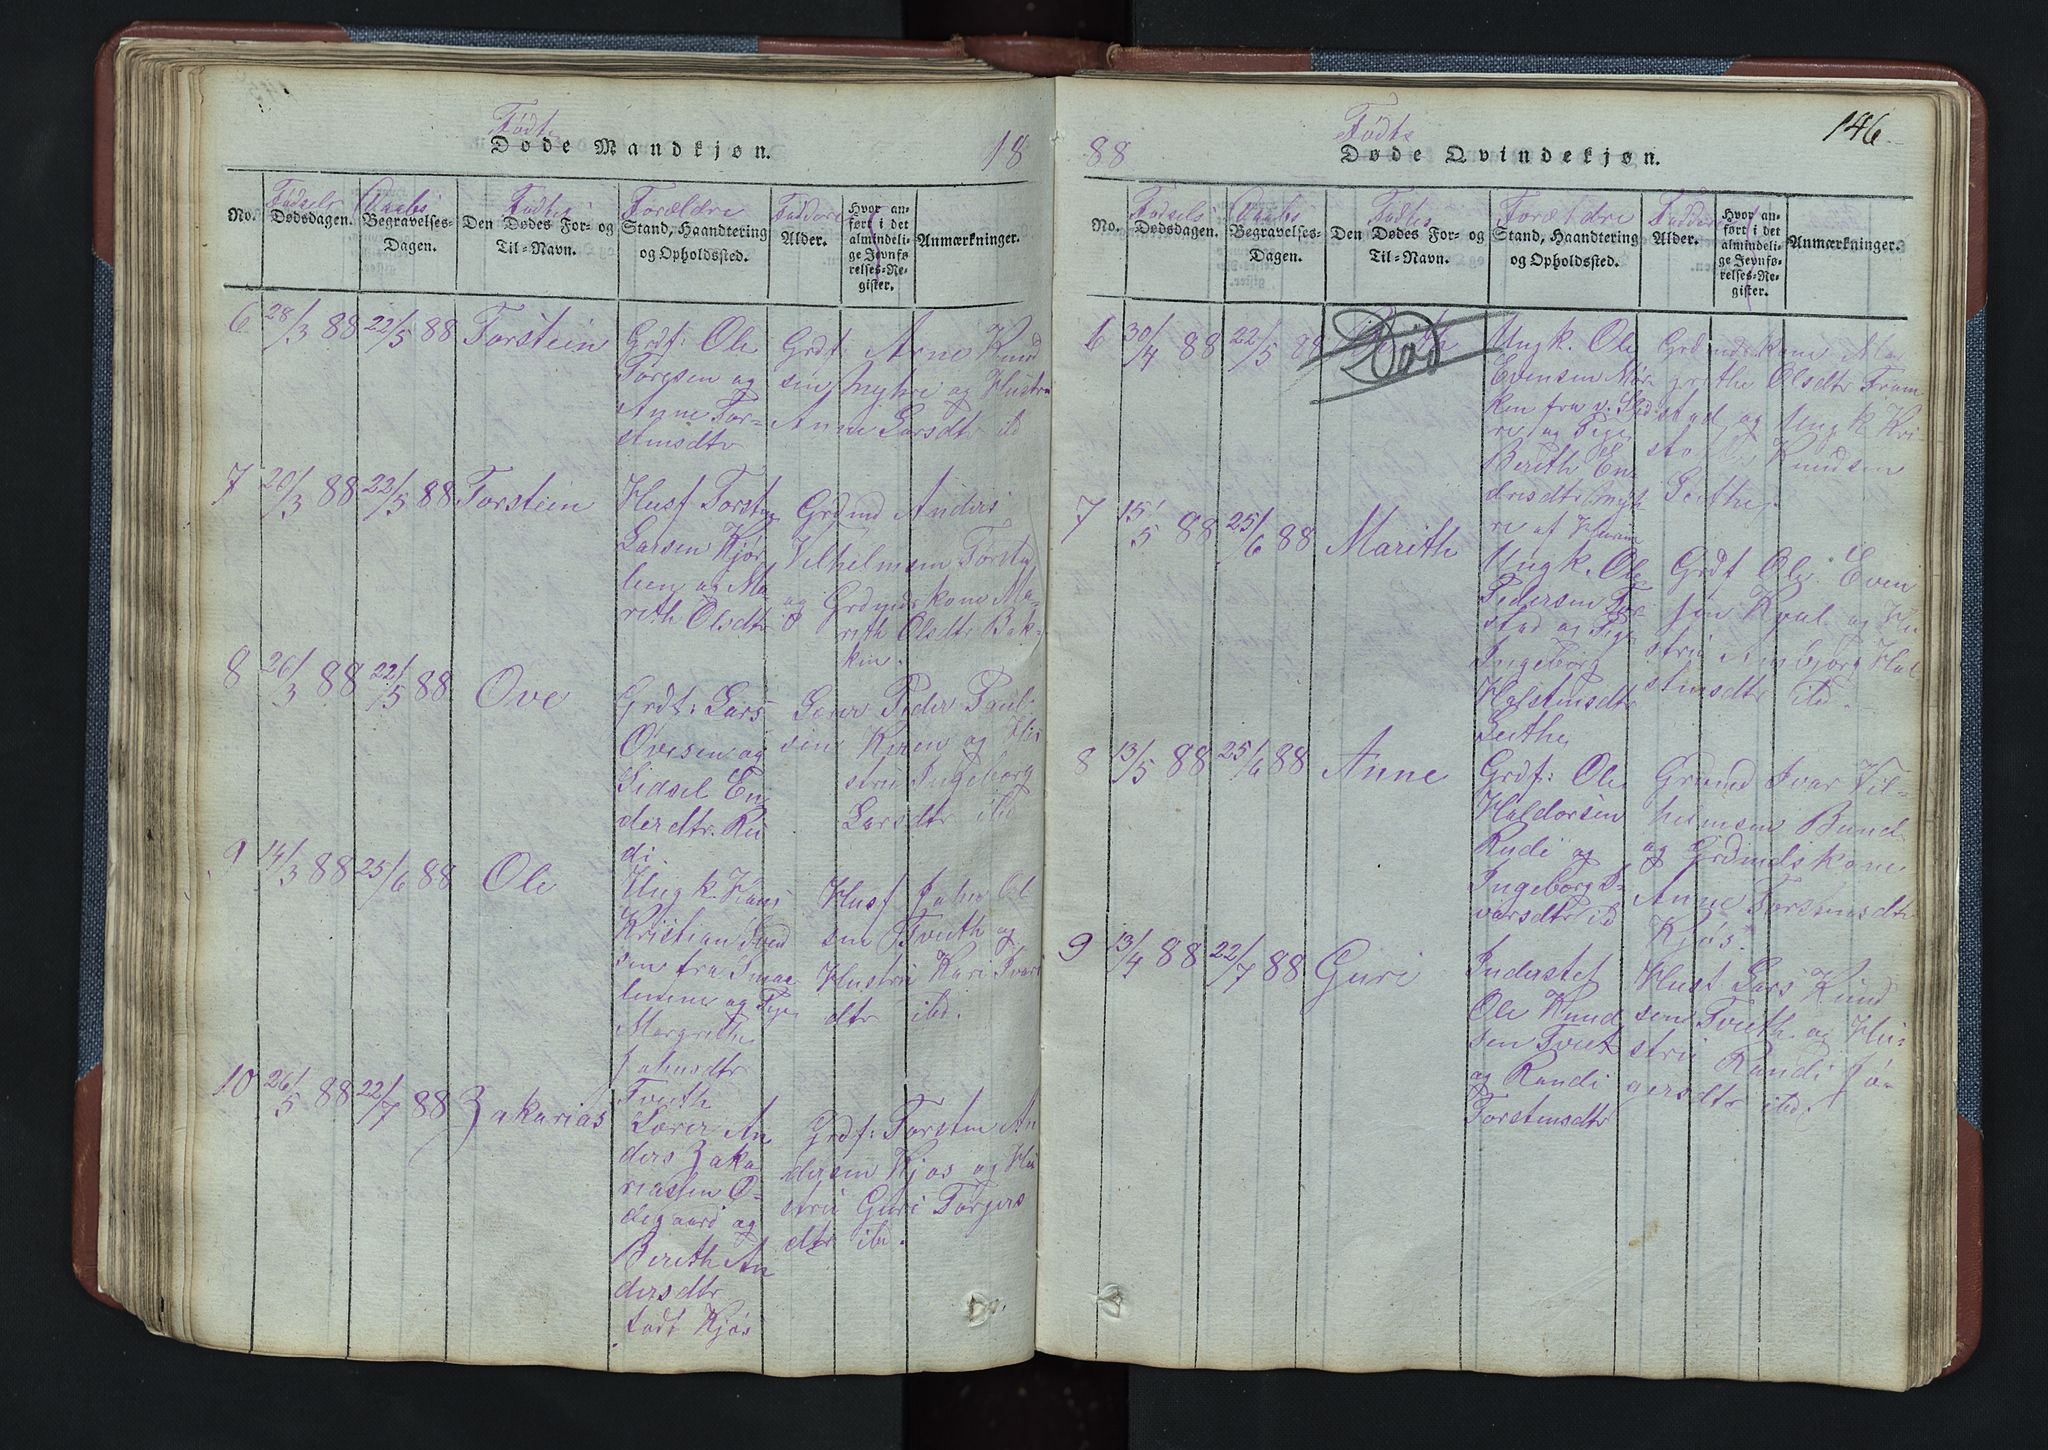 146
Fødte
Døde Mandkjøn.
18
No.
Fødsels
Dødsdagen.
Daabs
Begravelses-
Dagen.
Fødtes
Den Dødes For- og
Til-Navn.
Forældre
Stand, Haandtering
og Opholdssted.
Faddere
Alder.
Hvor an-
ført i det
almindeli-
ge Jevnfø-
relses-Re-
gister.
Anmærkninger.
6 28/3 88 22/5 88 Torstein
Grdf: Ole
Torgsen og
Anne Tor-
stensdtr
Grdf: Arne Knud
sen Myhre og Hustru
Anne Larsdtr ibd
7 20/3 88 22/5 88 Torstein
Husf Torsten
Larsen Kjør
lien og Ma-
rith Olsdtr
Grdmd Anders
Vilhelmsen
og Grdmdskone Ma-
rith Olsdtr Bak-
ken.
8 26/3 88 22/5 88 Ove
Grdf: Lars
Ovesen og
Sidsel En
dersdtr. Ru
di.
Lærer Peder Paul-
sen Kvien og Hu
stru Ingeborg
Larsdtr ibd
9 14/3 88 25/6 88 Ole
Ungk. Hans
Kristian Svend
sen fra Smaa-
lenene og Pige
Margrethe
Johnsdtr
Tveith
Husf John Ol
sen Tveith og
Hustru Kari Ivars
dtr ibd.
10 26/5 88 22/7 88 Zakarias
Lærer An
ders Zaka
riassen Ø-
degaard og
Berith An
dersdtr
født Kjøs
Grdf: Torsten An
dersen Kjøs og Hu
stru Guri Torgers
dtr ibd.
88
Fødte
Døde Qvindekjøn.
No.
Fødsels
Dødsdagen.
Daabs
Begravelses-
Dagen.
Fødtes
Den Dødes For- og
Til-Navn.
Forældre
Stand, Haandtering
og Opholdssted.
Faddere
Alder.
Hvor an-
ført i det
almindeli-
ge Jevnfø-
relses-Re-
gister.
Anmærkninger.
6 30/4 88 22/5 88 Død
Ungk. Ole
Evensen Mør-
ken fra v. Slid
re og Pige
Berith En
dresdtr Myh
re af Hurum
Grdmdskone Mar
grethe Olsdtr Fram
stad og Ungk Kri-
stoffer Knudsen
Leithe.
7 15/5 88 25/6 88 Marith
Ungk. Ole
Pedersen
stad og Pige
Ingeborg
Halstensdtr
Leithe
Grdf Ole Even
sen Kval og Hu
stru Ambjørg Hal
stensdtr ibd.
8 13/5 88 25/6 88 Anne
Grdf: Ole
Haldorsen
Rudi og
Ingeborg I-
varsdtr ibd
Grdmd Ivar Vil-
helmsen Bund
og Grdmdskone
Anne Torstensdtr
Kjøs.
9 13/4 88 22/7 88 Guri
Inderstef
Ole Knud
sen Tveit
og Randi
Torstensdtr
Husf Lars Knud
sen Tveith og Hu-
stru Randi Jø-
gersdtr ibd.